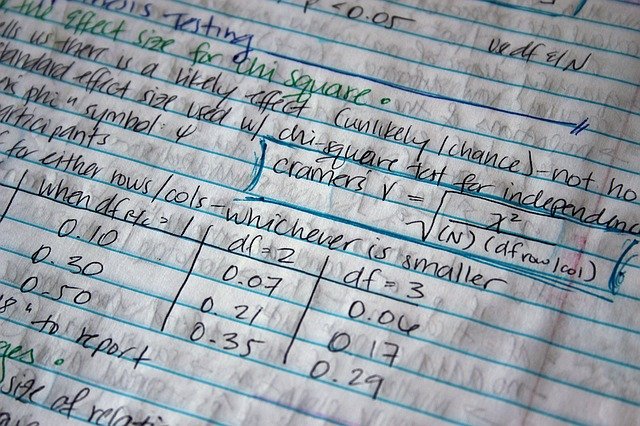 p < 0.05
Testing
use df & N
effect size for chi square.
us there is a likely effect (unlikely /chance)-not ho
standard effect size used w/ chi-square test for independence
phi" symbol: φ
participants
cramer's V = √ x² / (N) (df row/col)
for either rows/cols - whichever is smaller
when df r/c = 1 df = 2 df = 3
0.10 0.07 0.06
0.30 0.21 0.17
0.50 0.35 0.29
" to report
size of